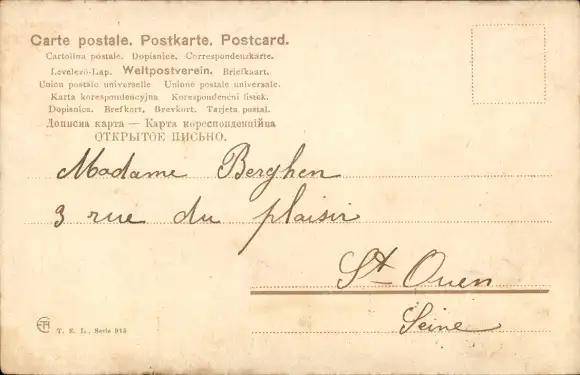 Carte postale. Postkarte. Postcard.
Cartolina postale. Dopisnice. Correspondenzkarte.
Levelező-Lap. Weltpostverein. Briefkaart.
Union postale universelle Unione postale universale.
Karta korespondencyjna Korespondenční lístek.
Dopisnica. Brefkort. Brevkort. Tarjeta postal.
Дописна карта — Карта кореспонденційна
ОТКРЫТОЕ ПИСЬМО.
Madame Berghen
3 rue du plaisir
St Ouen
Seine
T. E. L., Serie 915